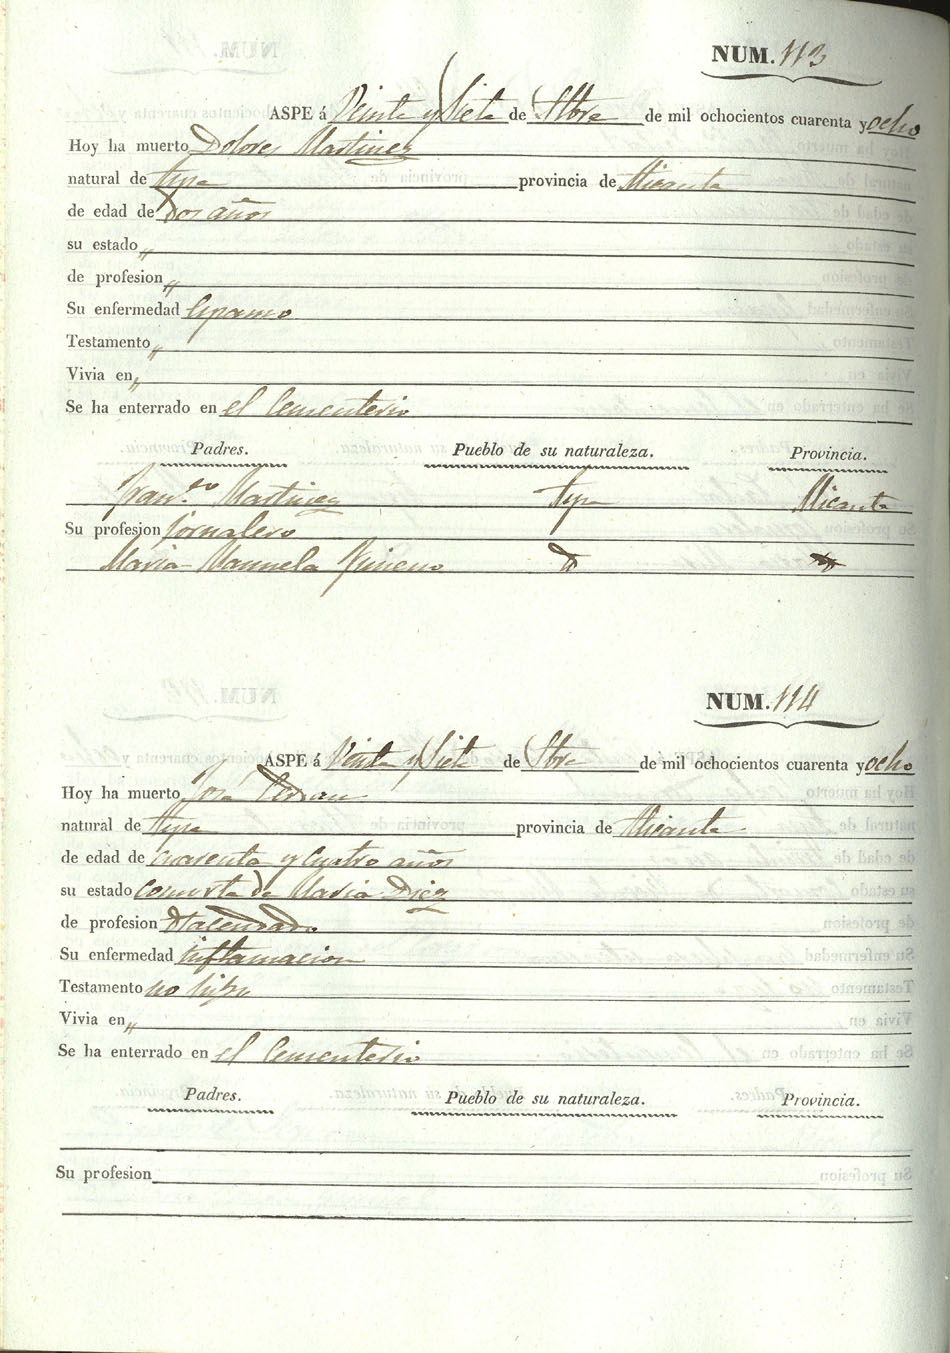 NUM. 113
ASPE á Veinte y Siete de Stbre de mil ochocientos cuarenta y ocho
Hoy ha muerto Dolores Martinez
natural de Aspe provincia de Alicante
de edad de Dos años
su estado „
de profesion „
Su enfermedad
Testamento „
Vivia en „
Se ha enterrado en el Cementerio
Padres. Pueblo de su naturaleza. Provincia.
Fran.co Martinez Aspe Alicante
Su profesion Jornalero
Maria Manuela
NUM. 114
ASPE á Veinte y Siete de Stbre de mil ochocientos cuarenta y ocho
Hoy ha muerto José
natural de Aspe provincia de Alicante
de edad de cuarenta y Cuatro años
su estado consorte de Maria Diez
de profesion
Su enfermedad inflamacion
Testamento no hizo
Vivia en „
Se ha enterrado en el Cementerio
Padres. Pueblo de su naturaleza. Provincia.
Su profesion